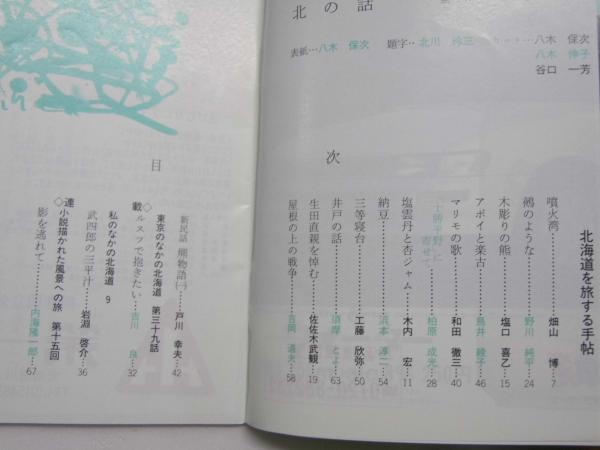 北の話
表紙…八木 保次
題字‥北川
カット…八木 保次
八木 伸子
谷口 一芳
目
次
北海道を旅する手帖
噴火湾……畑山 博…7
鵺のような……野川 純平…24
木彫りの熊……塩口 喜乙…15
アポイと楽古……鳥井 綾子…46
マリモの歌……和田 徹三…40
「十勝平野」に寄せて……柏原 成光…28
塩雲丹と杏ジャム……木内 宏…11
納豆……浜本 淳二…54
三等寝台……工藤 欣弥…50
井戸の話……須摩 とよ子…63
生田直親を悼む……佐佐木武観…19
屋根の上の戦争……吉岡 道夫…58
新民話 熊物語㈠……戸川 幸夫…42
◇連載
東京のなかの北海道 第三十九話
ルスツで抱きたい……吉川 良…32
私のなかの北海道 9
武四郎の三平汁……岩淵 啓介…36
◇小説描かれた風景への旅 第十五回
影を逃れて……内海隆一郎…67